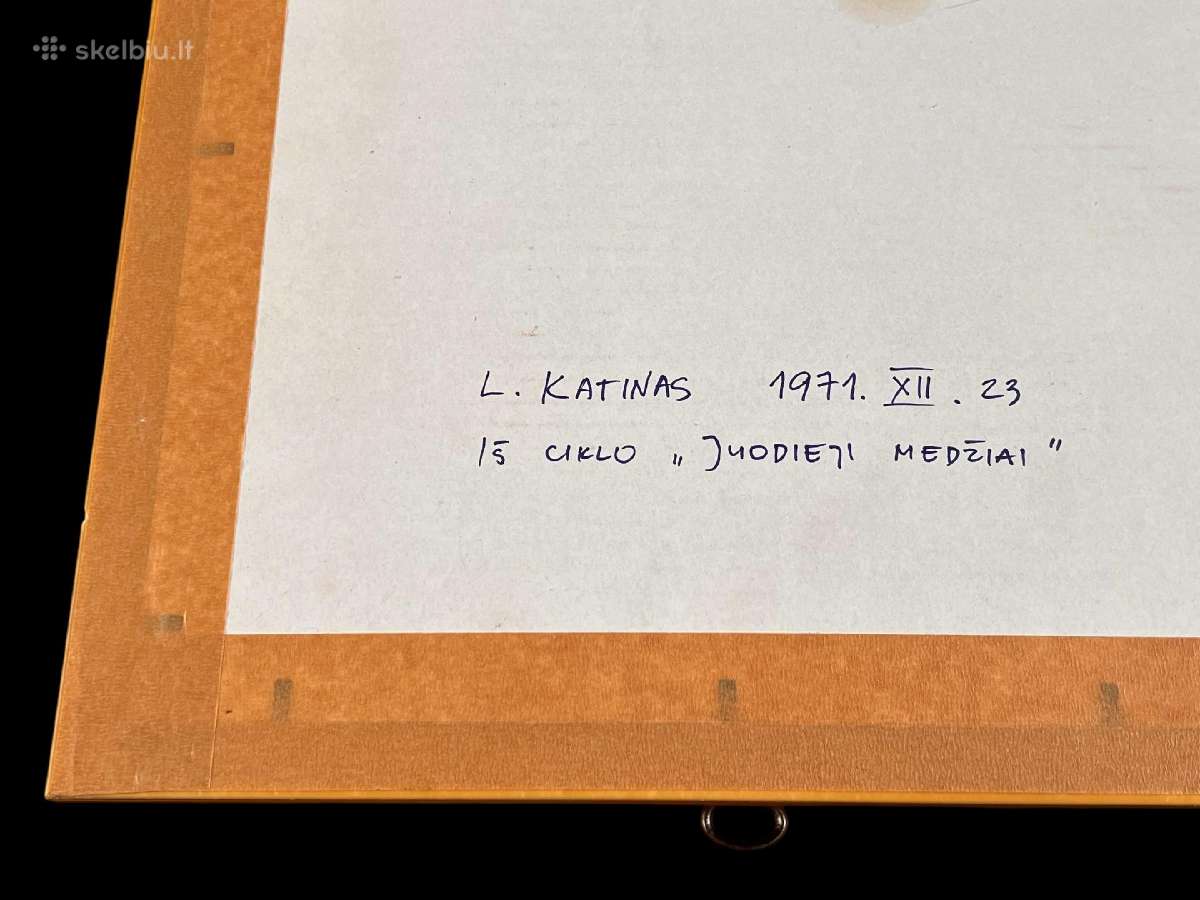 skelbiu.lt
L. KATINAS 1971. XII. 23
Iš CIKLO „JUODIEJI MEDŽIAI"